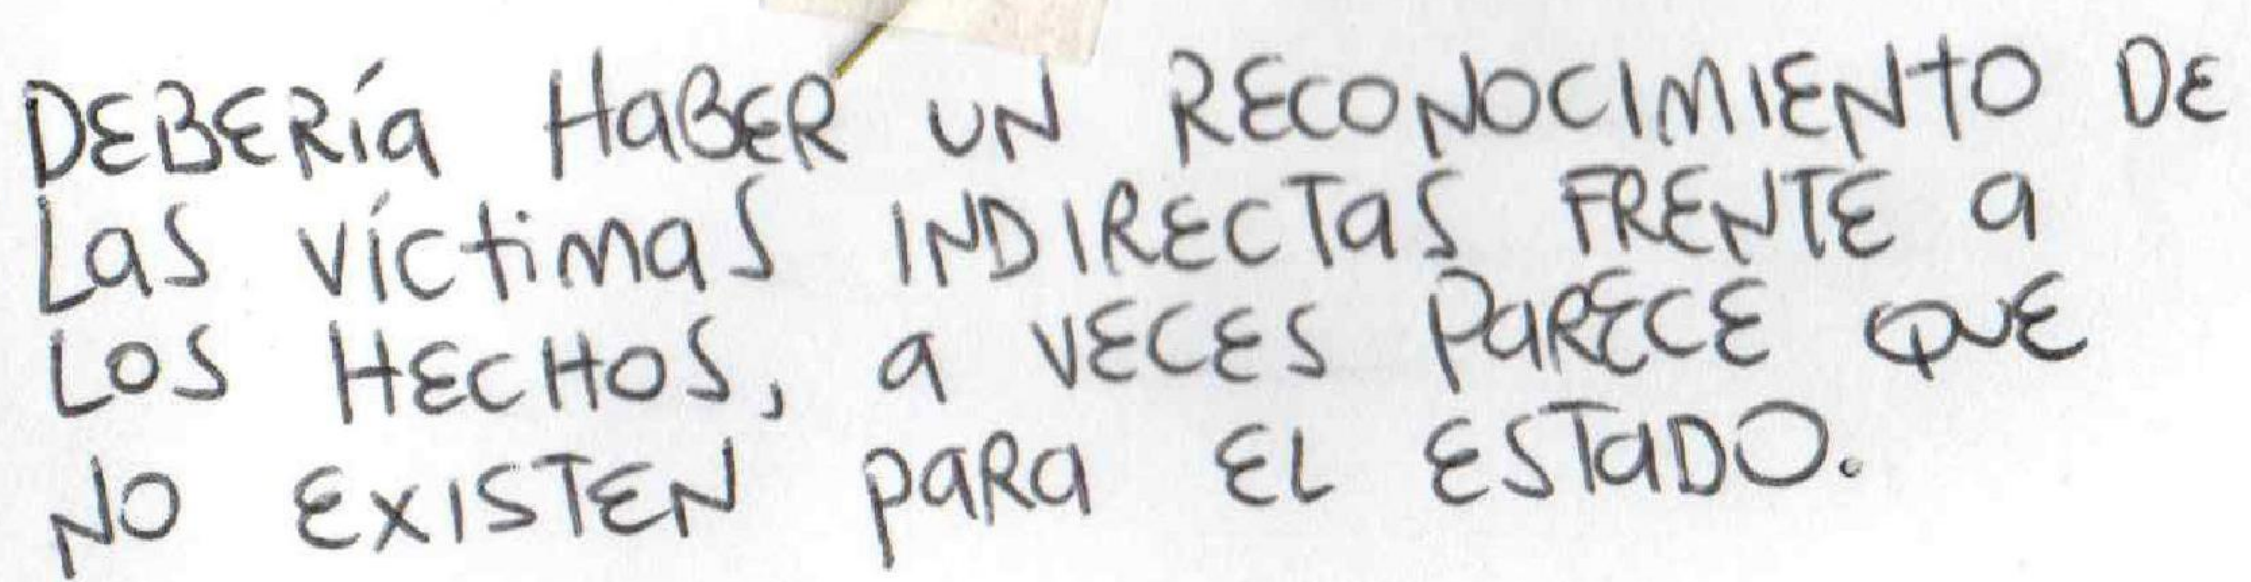 DEBERÍa HaBER UN RECONOCIMIENtO DE
Las víctimas INDIRECTas FRENTE a
LOS HECHOS, a VECES PaRECE QUE
NO EXISTEN PaRa EL ESTaDO.